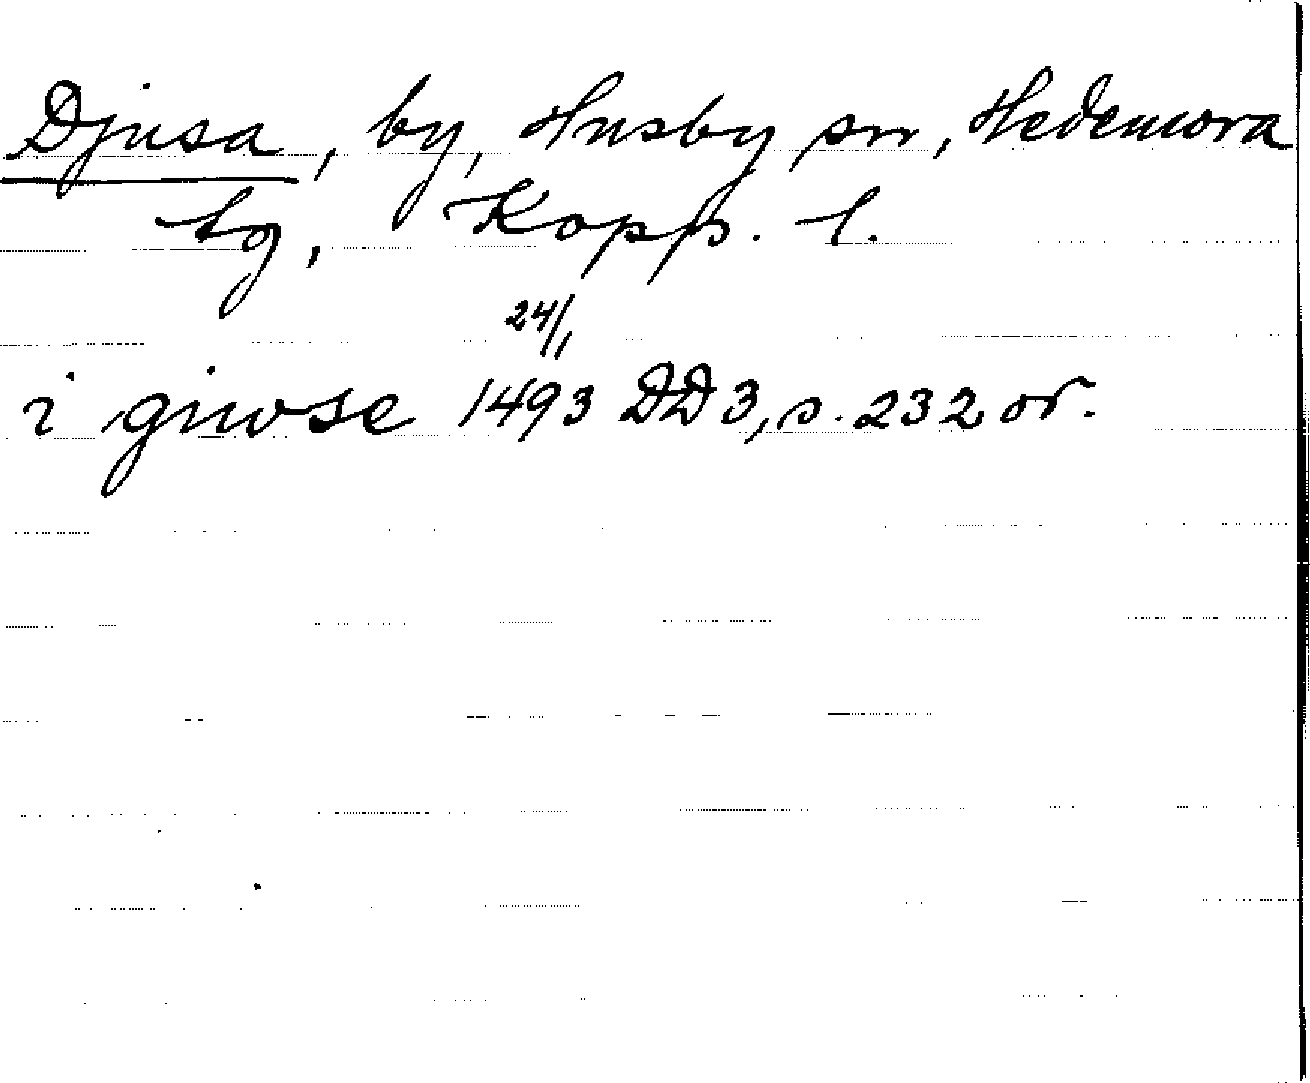 Djusa, by, Husby sn, Hedemora
tg, Kopp. l.
24/1
i giwse 1493 DD 3, s. 232 or.